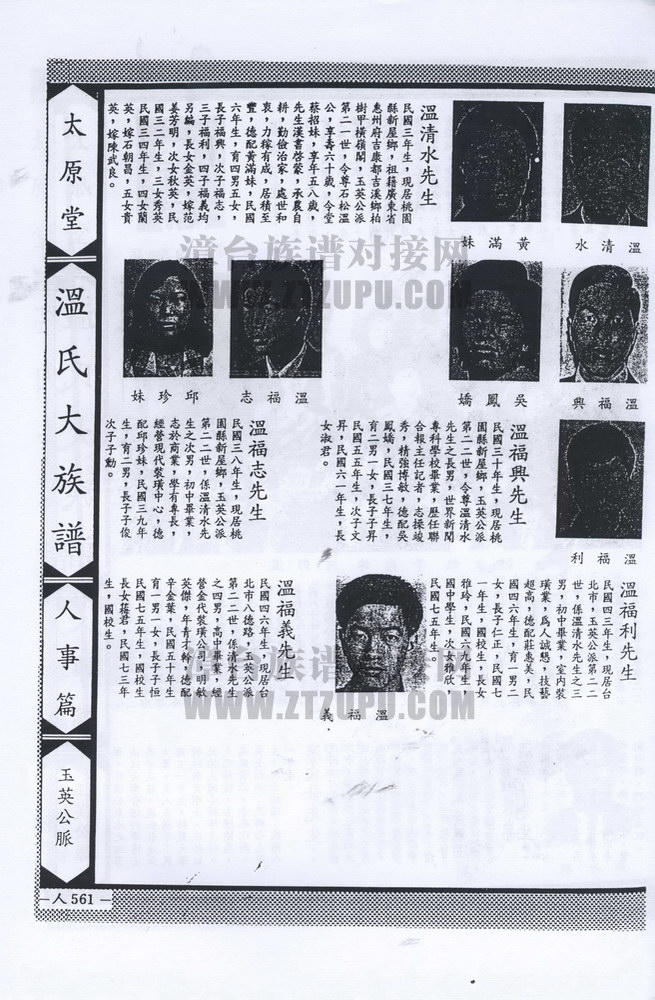 太原堂
溫氏大族譜
人事篇
玉英公脈
人561
溫清水
黃滿妹
溫清水先生
民國三年生，現居桃園
縣新屋鄉，祖籍廣東省
惠州府吉康都吉溪鄉柏
樹甲橫嶺閣，玉英公派
第二一世，令尊石松溫
公，享壽六十歲，令堂
蔡招妹，享年五八歲，
先生漢書啓蒙，承農自
耕，勤儉治家，處世和
衷，力稼有成，居積至
豐，德配黃滿妹，民國
六年生，育四男五女，
長子福興，次子福志，
三子福利，四子福義均
另編，長女金英，嫁范
姜芳明，次女秋英，民
國三二年生，三女秀英
民國三四年生，四女蘭
英，嫁石朝昌，五女貴
英，嫁陳武良。
溫福興
吳鳳嬌
溫福志
邱珍妹
溫福利
溫福興先生
民國三十年生，現居桃
園縣新屋鄉，玉英公派
第二二世，令尊溫清水
先生之長男，世界新聞
專科學校畢業，歷任聯
合報主任記者，志操竣
秀，精強博敏，德配吳
鳳嬌，民國三七年生，
育二男一女，長子子昇
民國五五年生，次子文
昇，民國六一年生，長
女淑君。
溫福志先生
民國三八年生，現居桃
園縣新屋鄉，玉英公派
第二二世，係溫清水先
生之次男，初中畢業，
志於商業，學有專長，
經營現代裝璜中心，德
配邱珍妹，民國三九年
生，育二男，長子子俊
次子子勳。
溫福利先生
民國四三年生，現居台
北市，玉英公派第二二
世，係溫清水先生之三
男，初中畢業，室內裝
璜業，爲人誠懇，技藝
超高，德配莊惠美，民
國四六年生，育一男二
女，長子仁正，民國七
一年生，國校生，長女
雅玲，民國六九年生，
國中學生，次女雅欣，
民國七五年生。
溫福義
溫福義先生
民國四六年生，現居台
北市八德路，玉英公派
第二二世，係清水先生
之四男，高中畢業，經
營金代裝璜公司，明敏
英傑，年青才幹，德配
辛金葉，民國五十年生
育一男一女，長子子恒
民國七五年生，國校生
長女蒨君，民國七三年
生，國校生。
漳台族谱对接网
WWW.ZTZUPU.COM
漳台族谱对接网
WWW.ZTZUPU.COM